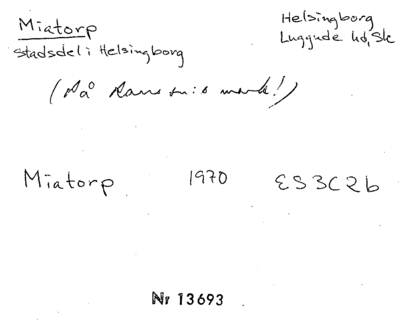 Miatorp
Stadsdel i Helsingborg
Helsingborg
Luggude hd, Sk
(På Raus sn:s mark!)
Miatorp 1970 ES3C2b
Nr 13693